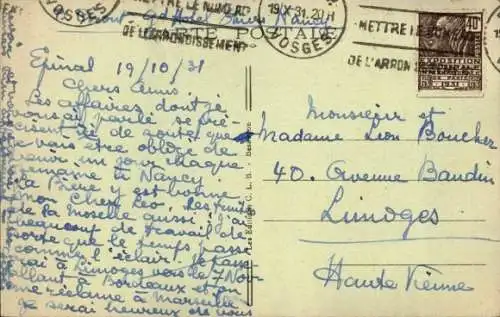 VOSGES
METTRE LE NUMERO
DE L'ARRONDISSEMENT
19 X 31 20 H
VOSGES
METTRE LE NUM
DE L'ARRON
40c
EXPOSITION
CARTE POSTALE
Gd Hotel
Nancy
Epinal 19/10/31
Chers Amis.
Les affaires dont je
vous ai parlé se pré
cisent de sorte que
je vais être obligé de
venir un jour chaque
semaine à Nancy.
La Bière y est bonne
mon Cher Leo. Les
de la Moselle aussi. J'ai
beaucoup de travail de
sorte que le temps passe
comme l'éclair. Je pass
erai à Limoges vers le 7 Nov
allant à Bordeaux et on
me réclame à Marseille
Je serai heureux de vous
Les Editions C. L. B.
Monsieur et
Madame Léon Boucher
40. Avenue Baudin
Limoges
Haute Vienne